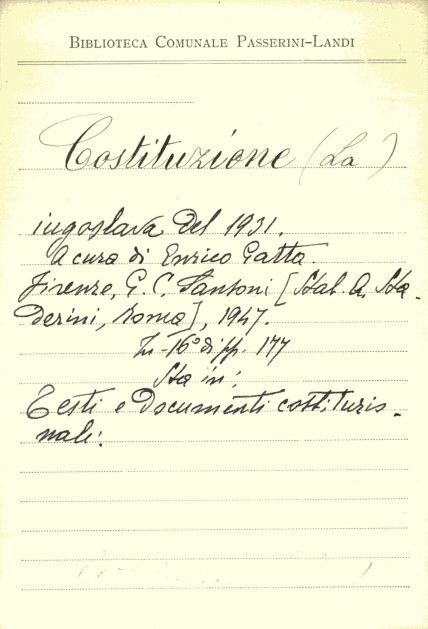 BIBLIOTECA COMUNALE PASSERINI-LANDI
Costituzione (La)
iugoslava del 1931.
A cura di Enrico Gatta.
Firenze, G. C. Sansoni [Stab. A. Sta-
derini, Roma], 1947.
In-16° di pp. 177
Sta in:
Testi e Documenti costituzio-
nali.